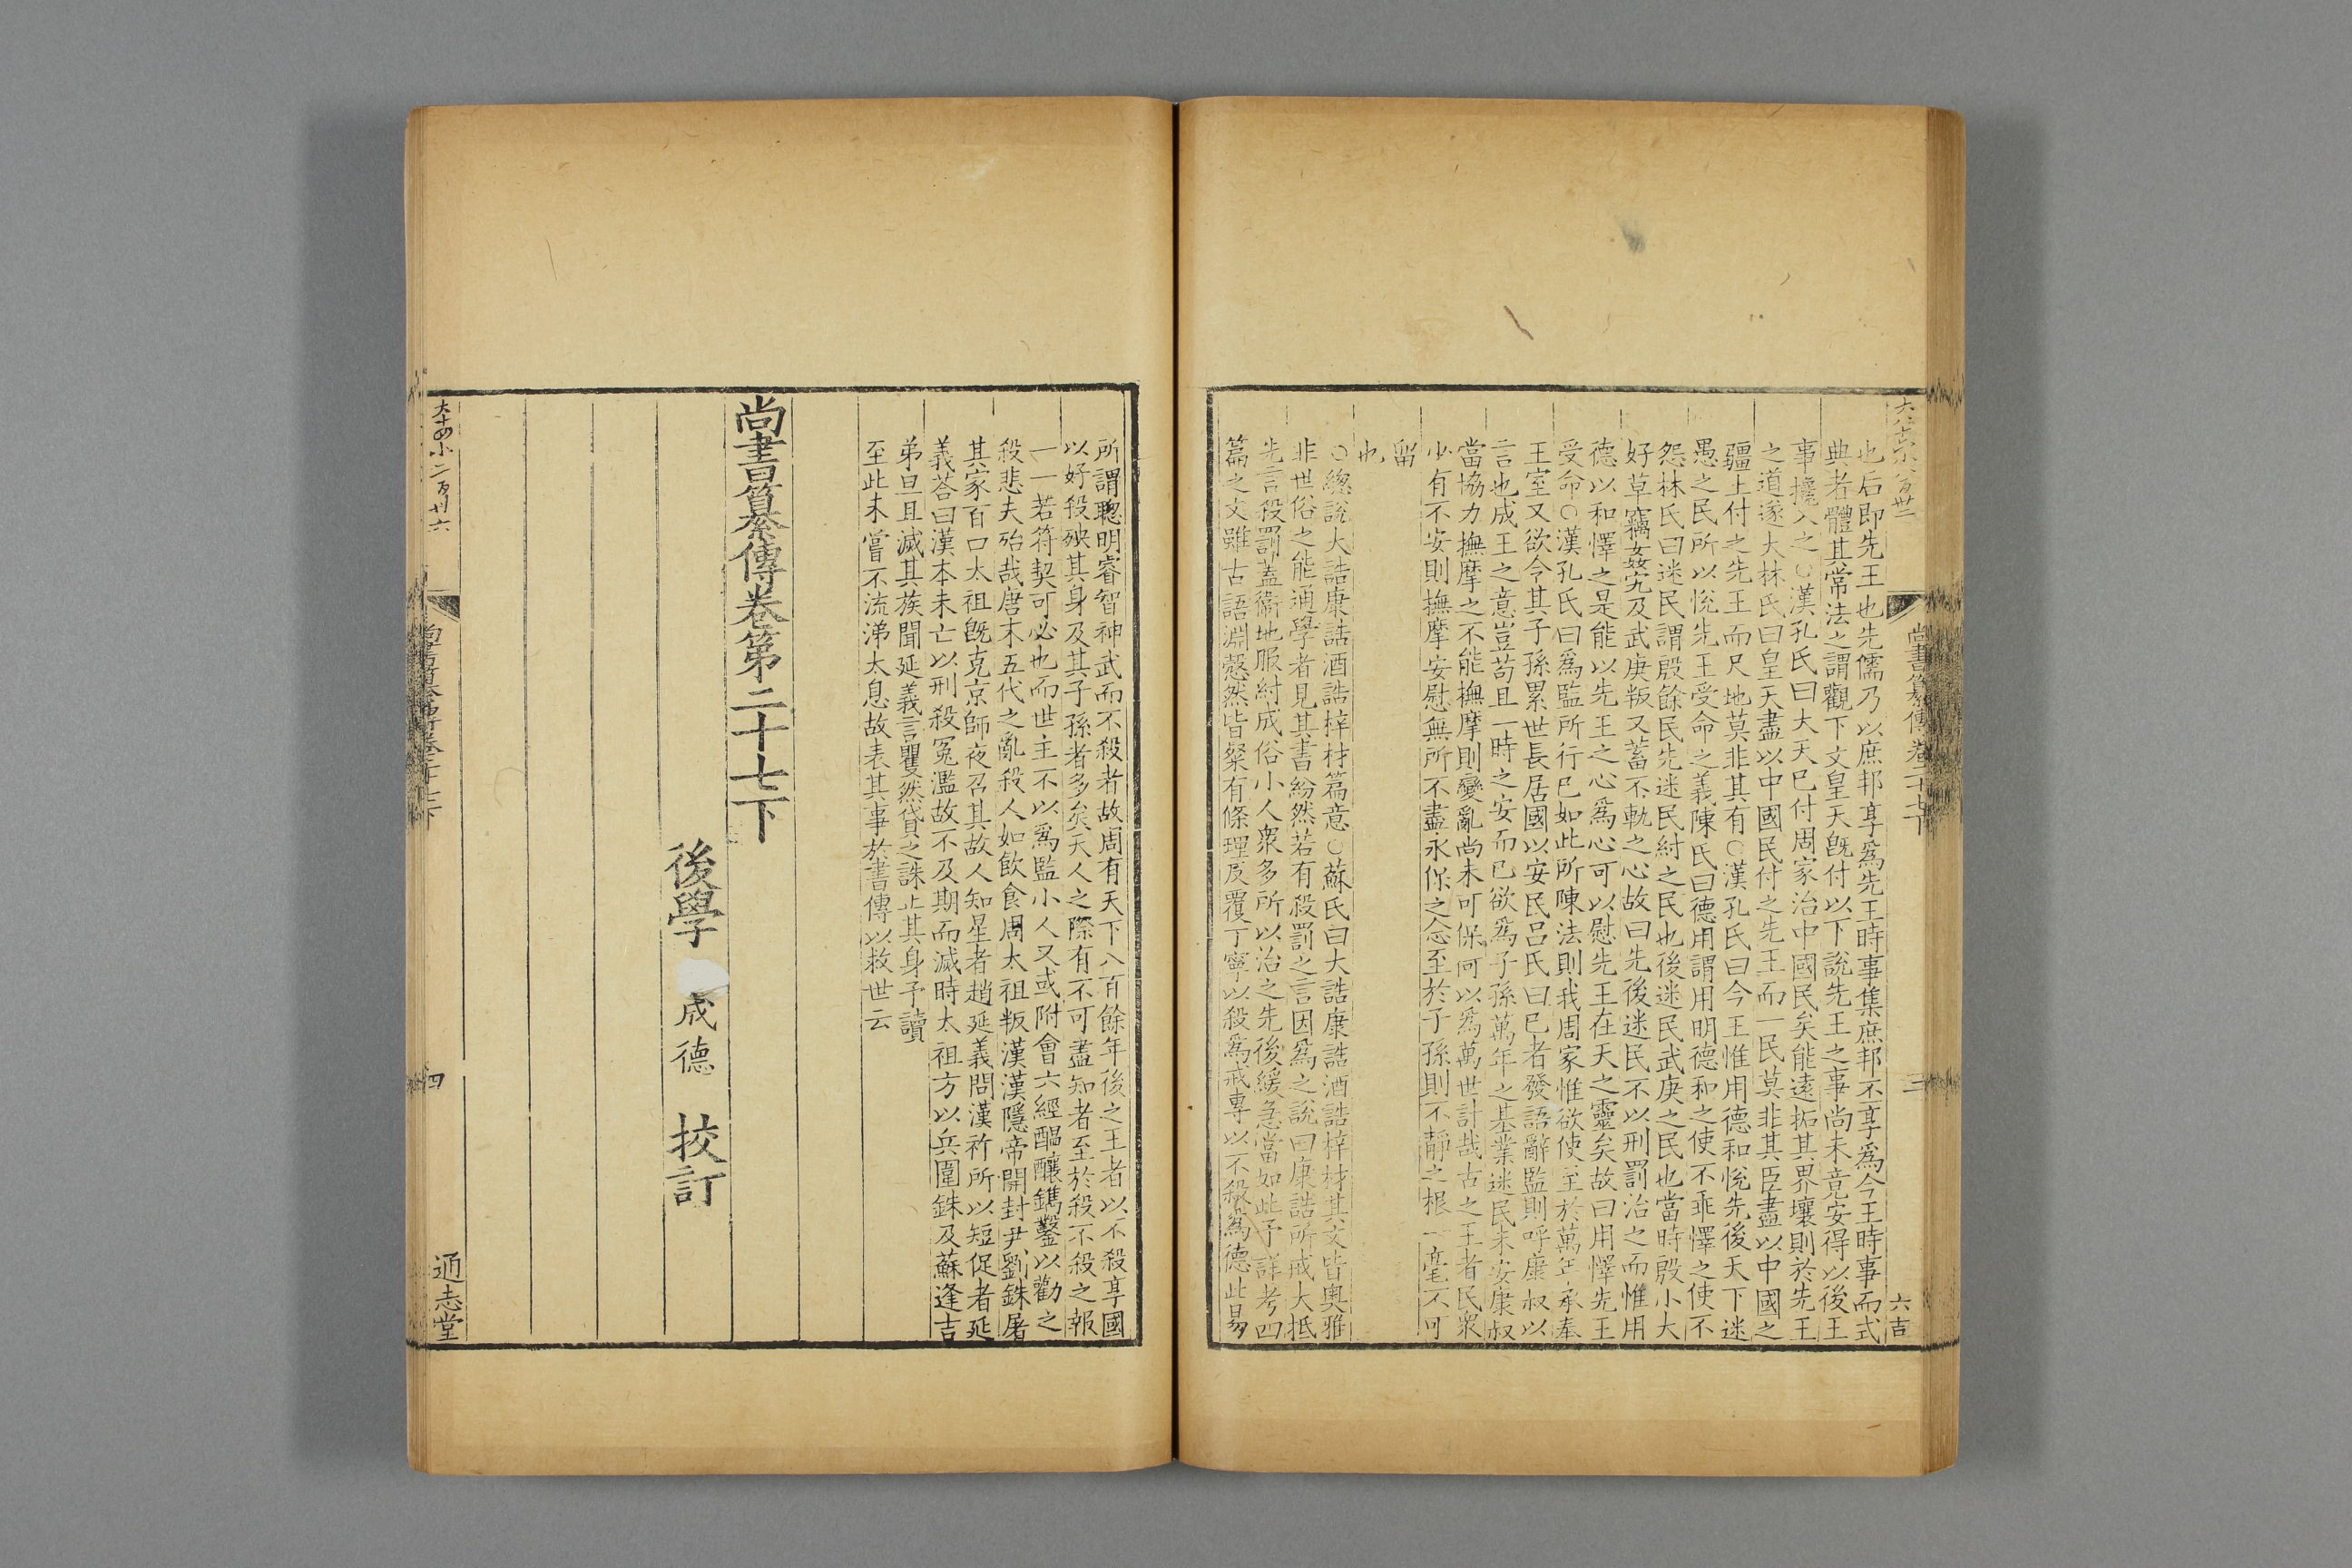 也后即先王也先儒乃以庶邦享爲先王時事集庶邦丕享爲今王時事而式
典者體其常法之謂觀下文皇天旣付以下說先王之事尚未竟安得以後王
事攙入之○漢孔氏曰大天已付周家治中國民矣能遠拓其界壤則於先王
之道遂大林氏曰皇天盡以中國民付之先王而一民莫非其臣盡以中國之
疆土付之先王而尺地莫非其有○漢孔氏曰今王惟用德和悅先後天下迷
愚之民所以悅先王受命之義陳氏曰德用謂用明德和之使不乖懌之使不
怨林氏曰迷民謂殷餘民先迷民紂之民也後迷民武庚之民也當時殷小大
好草竊姦宄及武庚叛又蓄不軌之心故曰先後迷民不以刑罰治之而惟用
德以和懌之是能以先王之心爲心可以慰先王在天之靈矣故曰用懌先王
受命○漢孔氏曰爲監所行已如此所陳法則我周家惟欲使至於萬年承奉
王室又欲令其子孫累世長居國以安民呂氏曰已者發語辭監則呼康叔以
言也成王之意豈苟且一時之安而已欲爲子孫萬年之基業迷民未安康叔
當協力撫摩之不能撫摩則變亂尚未可保何以爲萬世計哉古之王者民衆
少有不安則撫摩安慰無所不盡永保之念至於子孫則不靜之根一毫不可
留
也
○總說大誥康誥酒誥梓材篇意○蘇氏曰大誥康誥酒誥梓材其文皆奧雅
非世俗之能通學者見其書紛然若有殺罰之言因爲之說曰康誥所戒大抵
先言殺罰蓋衞地服紂成俗小人衆多所以治之先後緩急當如此予詳考四
篇之文雖古語淵愨然皆粲有條理反覆丁寧以殺爲戒專以不殺爲德此易
尚書纂傳卷二十七下
三
六吉
所謂聰明睿智神武而不殺者故周有天下八百餘年後之王者以不殺享國
以好殺殃其身及其子孫者多矣天人之際有不可盡知者至於殺不殺之報
一一若符契可必也而世主不以爲監小人又或附會六經醞釀鐫鑿以勸之
殺悲夫殆哉唐末五代之亂殺人如飲食周太祖叛漢漢隱帝開封尹劉銖屠
其家百口太祖旣克京師夜召其故人知星者趙延義問漢祚所以短促者延
義荅曰漢本未亡以刑殺冤濫故不及期而滅時太祖方以兵圍銖及蘇逢吉
弟旦且滅其族聞延義言瞿然貸之誅止其身予讀
至此未嘗不流涕太息故表其事於書傳以救世云
尚書纂傳卷第二十七下
後學 成德 挍訂
大十四小二百卅六
四
通志堂